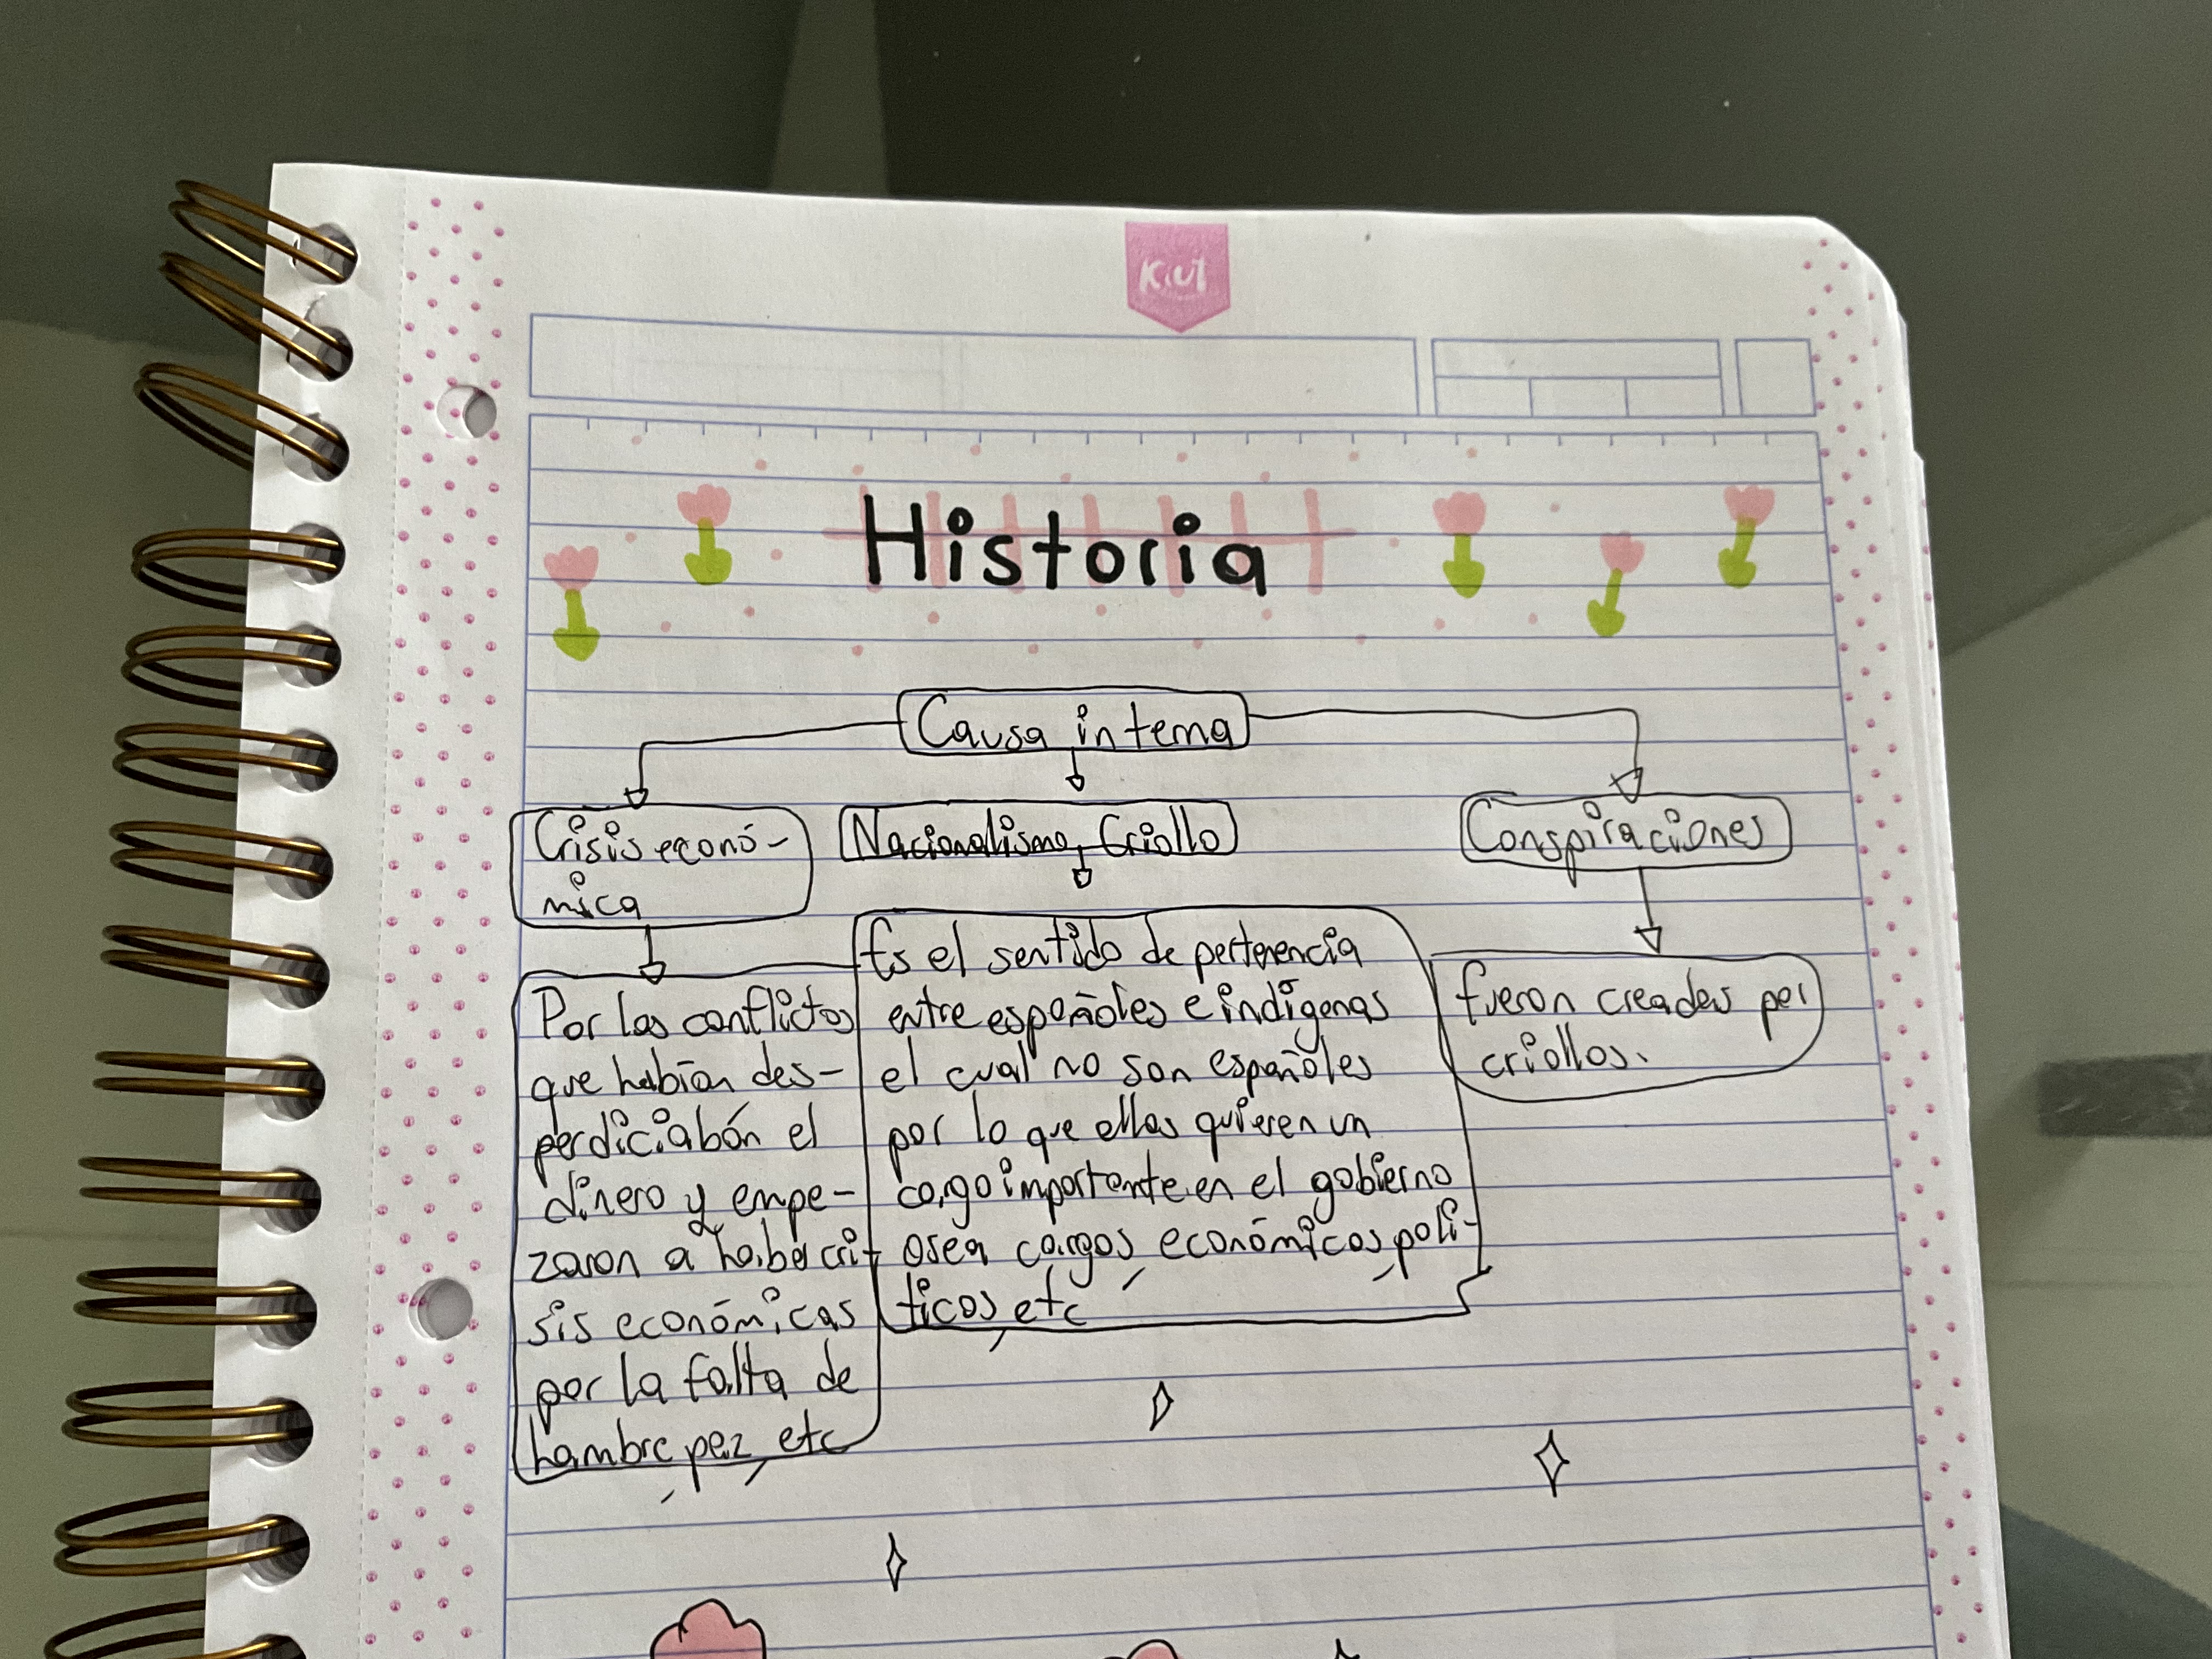 Kiut
Historia
Causa interna
Crisis econó-
mica
Nacionalismo Criollo
Conspiraciones
Por los conflictos
que habían des-
perdiciabán el
dinero y empe-
zaron a haber cri-
sis económicas
por la falta de
hambre, pez, etc
Es el sentido de pertenencia
entre españoles e indígenas
el cual no son españoles
por lo que ellos quieren un
cargo importante en el gobierno
osea cargos, económicos, polí-
ticos, etc
fueron creadas por
criollos.